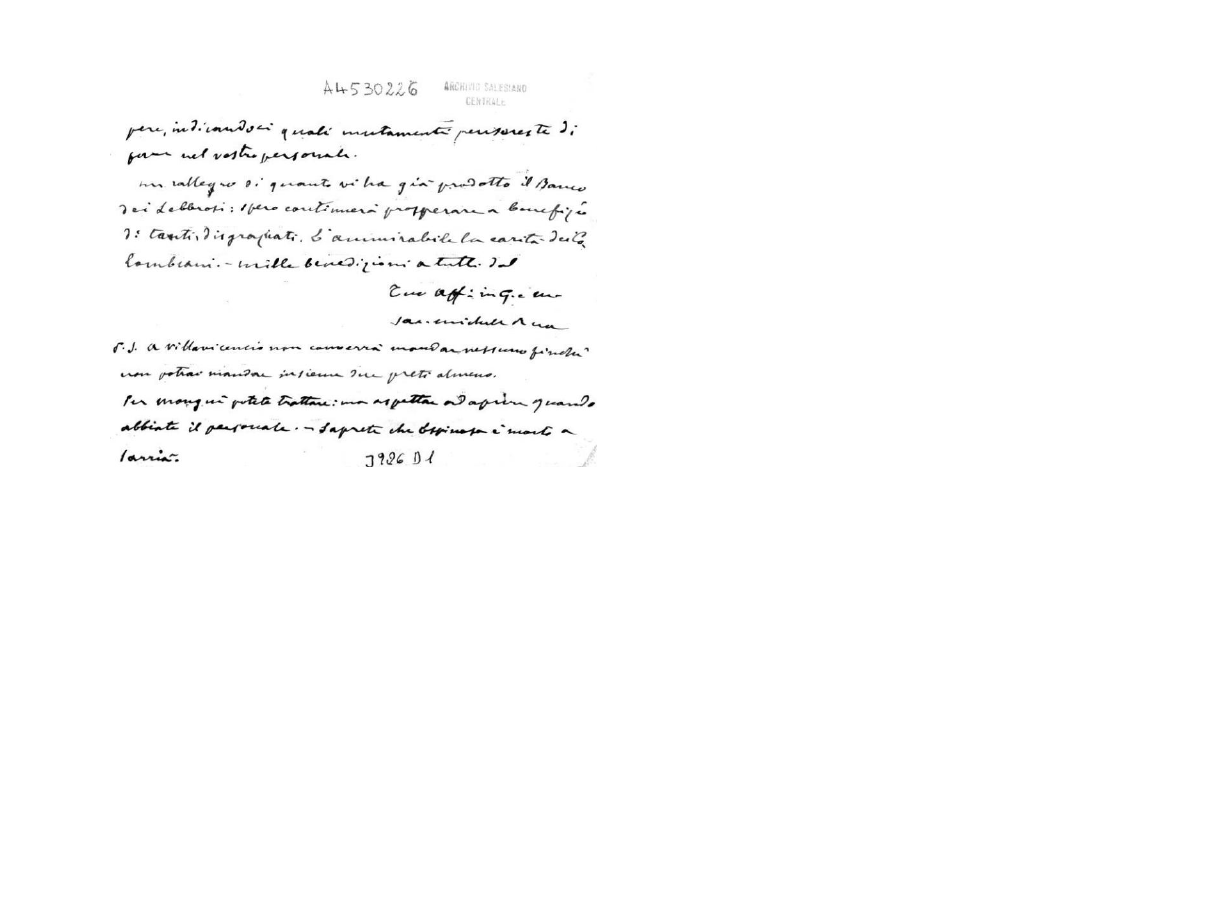 A4530226
ARCHIVIO SALESIANO
CENTRALE
pere, indicandoci quali mutamenti pensereste di
fare nel vostro personale.
mi rallegro di quanto vi ha già prodotto il Banco
dei Lebbrosi: spero continuerà prosperare a benefizio
di tanti disgraziati. È ammirabile la carità dei
Colombiani. - mille benedizioni a tutti dal
Tuo aff: in G. e M.
Sac. Michele Rua
P.S. A Villavicencio non converrà mandar nessuno finchè
non potrai mandar insieme due preti almeno.
Per potete trattare: ma aspettar ad aprire quando
abbiate il personale. - Saprete che Espinosa è morto a
Sarrià.